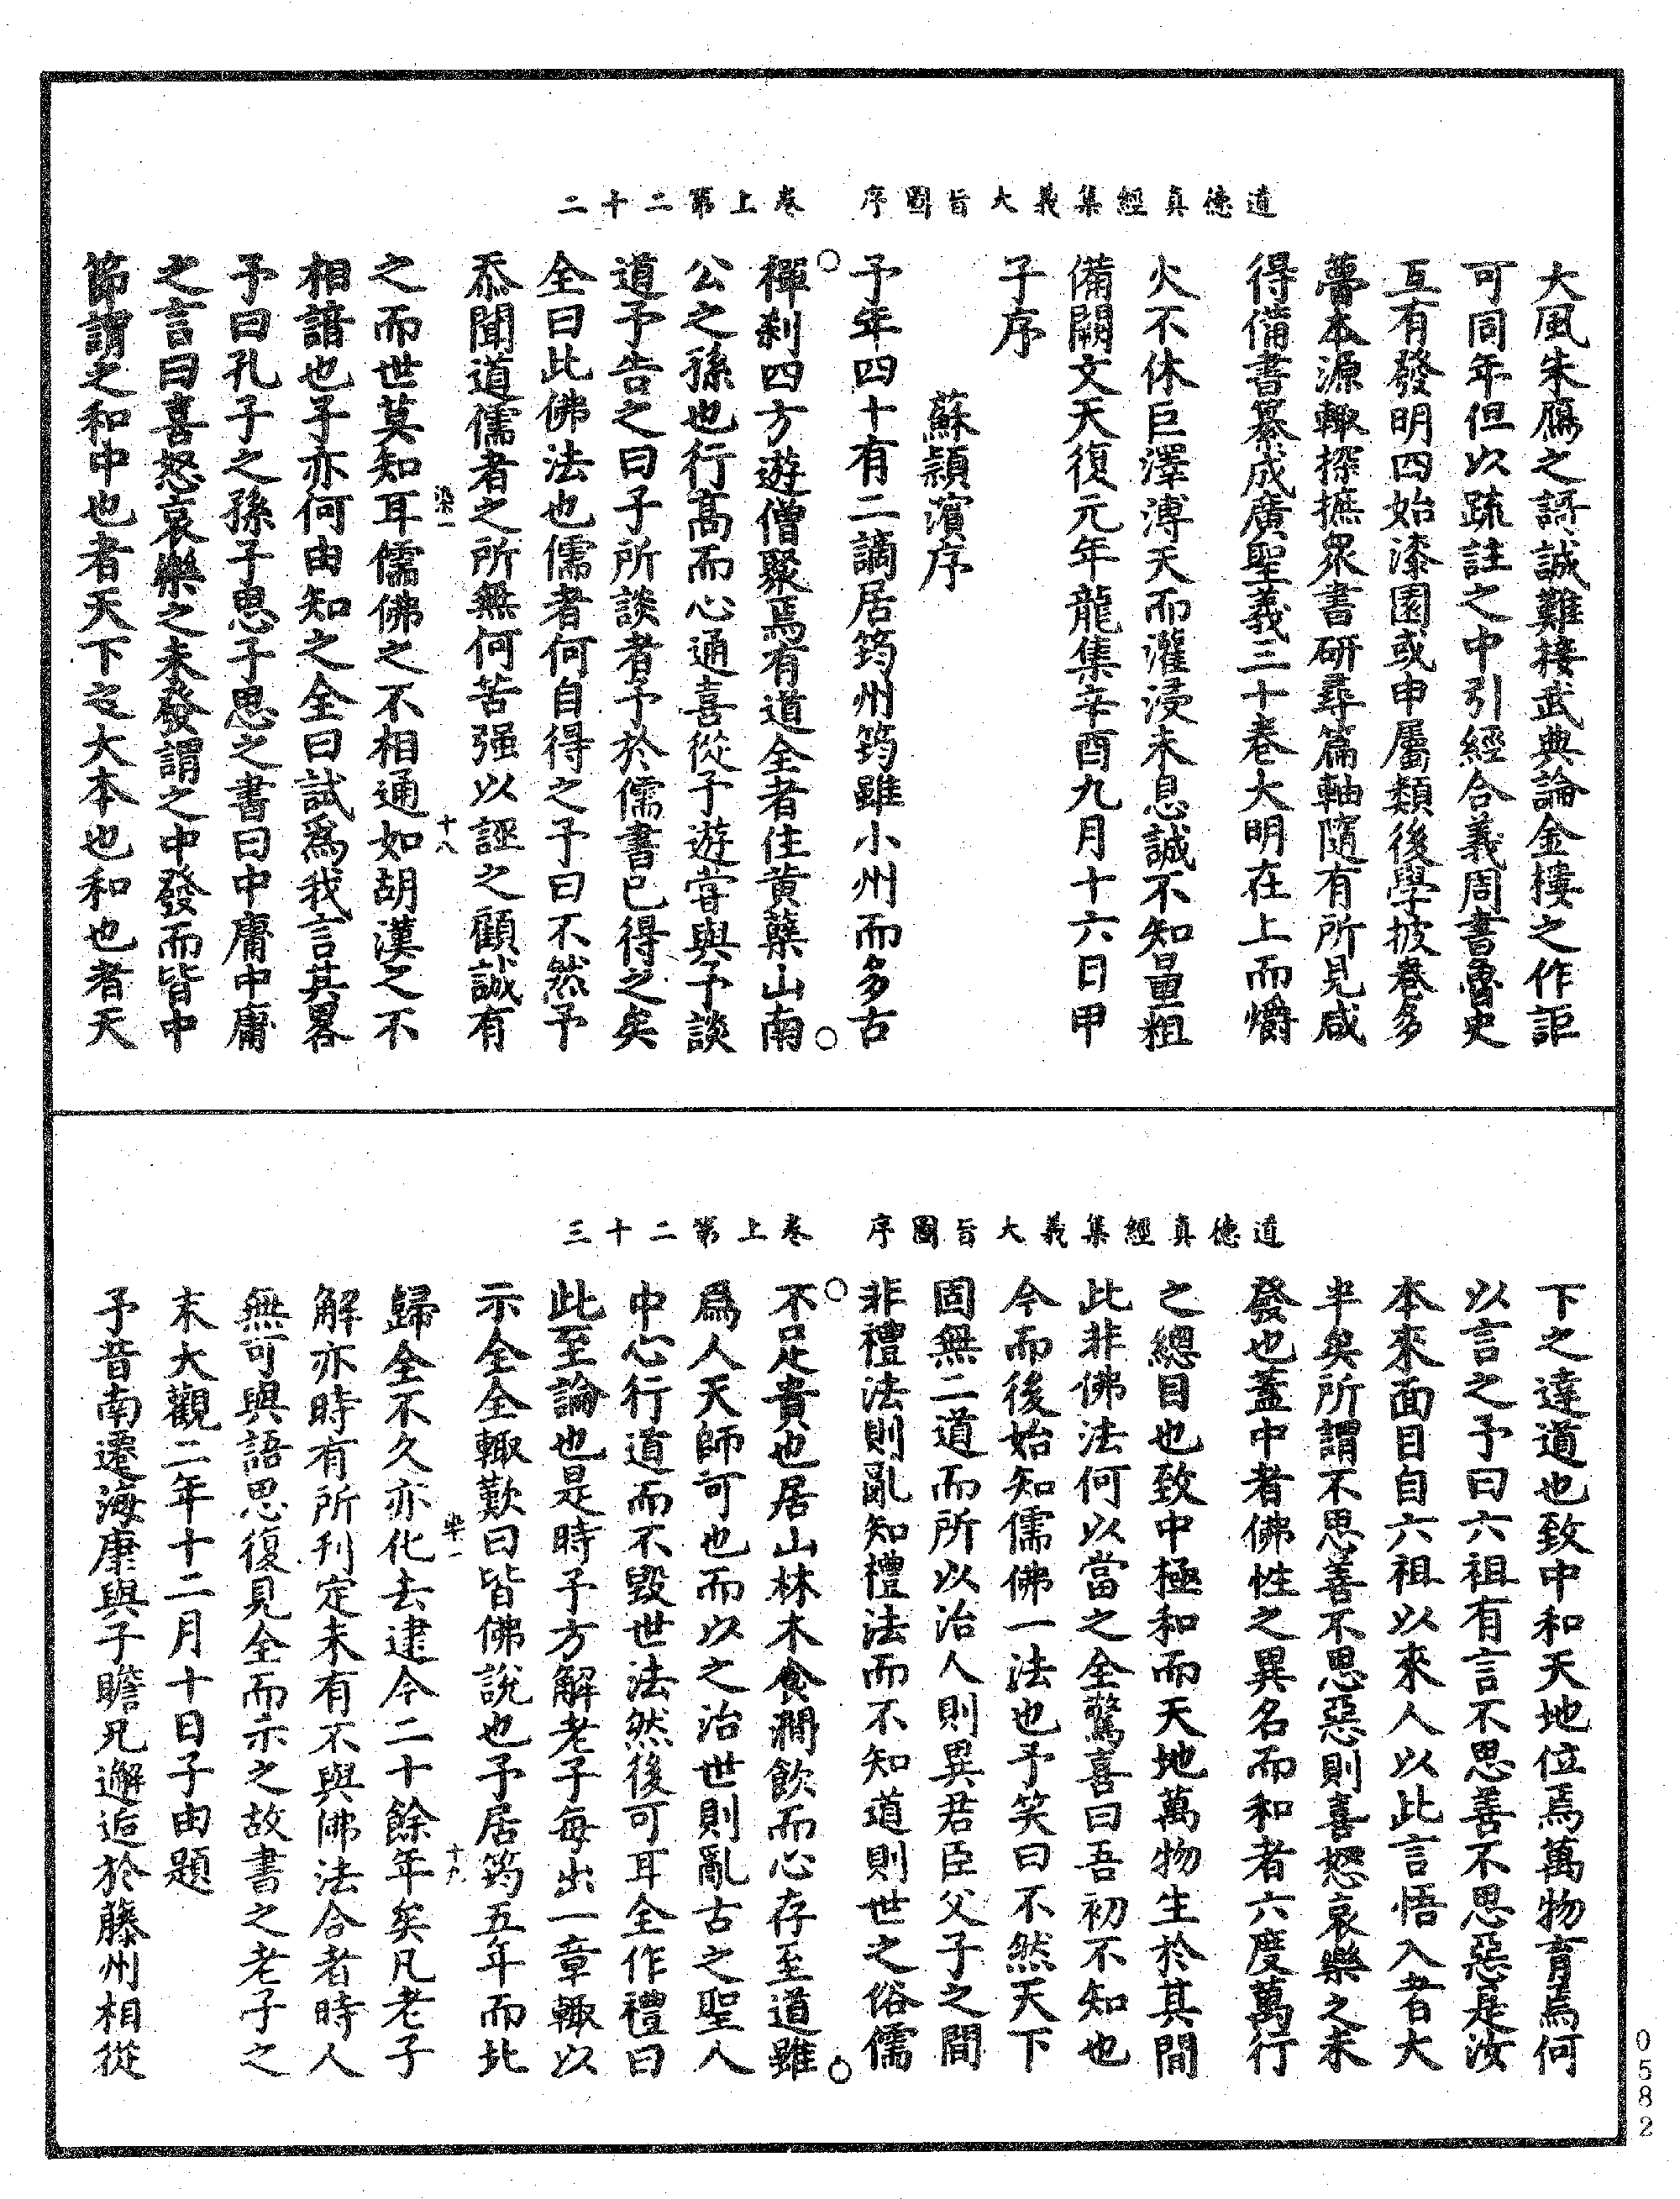 道德真經集義大旨圖序　卷上第二十二
大風朱鴈之謌誠難接武典論金樓之作詎
可同年但以疏註之中引經合義周書魯史
互有發明四始漆園或申屬類後學披卷多
瞢本源輙採摭衆書研尋篇軸隨有所見咸
得備書纂成廣聖義三十卷大明在上而爝
火不休巨澤溥天而灌浸未息誠不知量粗
備闕文天復元年龍集辛酉九月十六日甲
子序
蘇潁濱序
予年四十有二謫居筠州筠雖小州而多古
禪刹四方遊僧聚焉有道全者住黄蘗山南
公之孫也行高而心通喜從予遊甞與予談
道予告之曰子所談者予於儒書已得之矣
全曰此佛法也儒者何自得之予曰不然予
忝聞道儒者之所無何苦强以誣之顧誠有
之而世莫知耳儒佛之不相通如胡漢之不
染一
十八
相諳也子亦何由知之全曰試爲我言其畧
予曰孔子之孫子思子思之書曰中庸中庸
之言曰喜怒哀樂之未發謂之中發而皆中
節謂之和中也者天下之大本也和也者天
道德真經集義大旨圖序　卷上第二十三
下之達道也致中和天地位焉萬物育焉何
以言之予曰六祖有言不思善不思惡是汝
本來面目自六祖以來人以此言悟入者大
半矣所謂不思善不思惡則喜怒哀樂之未
發也蓋中者佛性之異名而和者六度萬行
之總目也致中極和而天地萬物生於其間
此非佛法何以當之全驚喜曰吾初不知也
今而後始知儒佛一法也予笑曰不然天下
固無二道而所以治人則異君臣父子之間
非禮法則亂知禮法而不知道則世之俗儒
不足貴也居山林木食澗飲而心存至道雖
爲人天師可也而以之治世則亂古之聖人
中心行道而不毀世法然後可耳全作禮曰
此至論也是時予方解老子每出一章輙以
示全全輙歎曰皆佛說也予居筠五年而北
歸全不久亦化去逮今二十餘年矣凡老子
染一
十九
解亦時有所刊定未有不與佛法合者時人
無可與語思復見全而示之故書之老子之
末大觀二年十二月十日子由題
予昔南遷海康與子瞻兄邂逅於藤州相從
0582